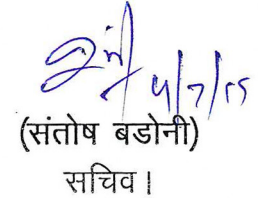 4/7/15
(संतोष बडोनी)
सचिव।